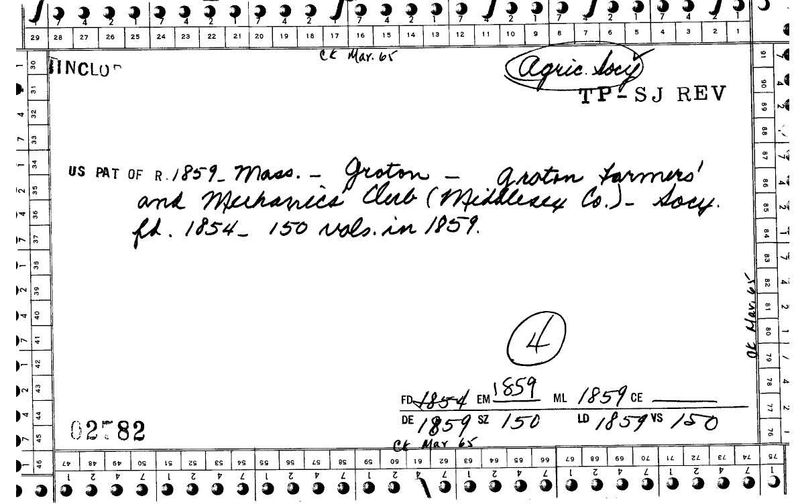 29 28 27 26 25 24 23 22 21 20 19 18 17 16 15 14 13 12 11 10 9 8 7 6 5 4 3 2 1
CK Mar. 65
INCLO
Agric. Socy
TP-SJ REV
US PAT OF R. 1859 - Mass. - Groton - Groton Farmers'
and Mechanics Club (Middlesex Co.) - Socy.
fd. 1854 - 150 vols. in 1859.
4
CK Mar. 65
FD 1854 EM 1859 ML 1859 CE
DE 1859 SZ 150 LD 1859 VS 150
02782
CK Mar 65
30 31 32 33 34 35 36 37 38 39 40 41 42 43 44 45 46
47 48 49 50 51 52 53 54 55 56 57 58 59 60 61 62 63 64 65 66 67 68 69 70 71 72 73 74 75
76 77 78 79 80 81 82 83 84 85 86 87 88 89 90 91